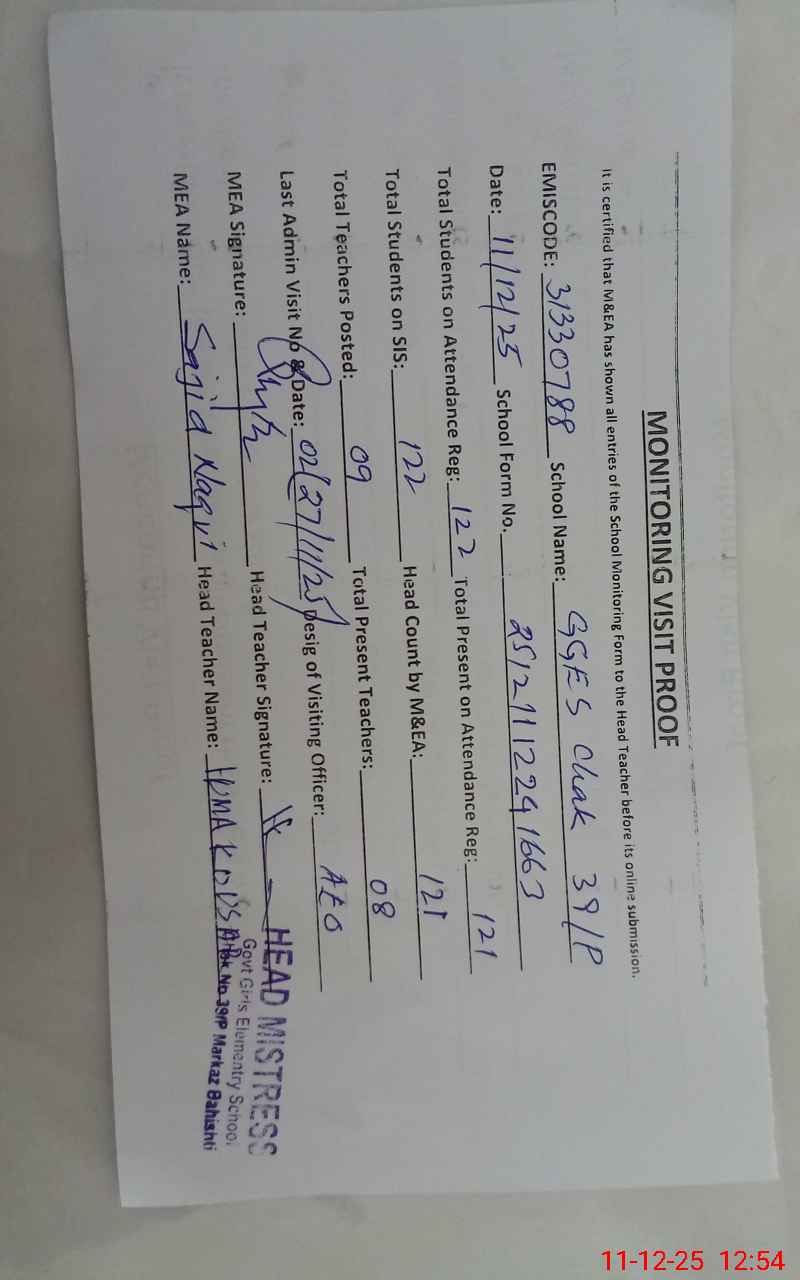 MONITORING VISIT PROOF
It is certified that M&EA has shown all entries of the School Monitoring Form to the Head Teacher before its online submission.
EMISCODE: 31330788 School Name: GGES Chak 39/P
Date: 11/12/25 School Form No. 251211122941663
Total Students on Attendance Reg: 122 Total Present on Attendance Reg: 121
Total Students on SIS: 122 Head Count by M&EA: 121
Total Teachers Posted: 09 Total Present Teachers: 08
Last Admin Visit No & Date: 02(27/11/25) Desig of Visiting Officer: AEO
MEA Signature: Head Teacher Signature:
MEA Name: Sajid Naqvi Head Teacher Name:
HEAD MISTRESS
Govt Girls Elementry School
Chak No 39/P Markaz Bahishti
11-12-25 12:54